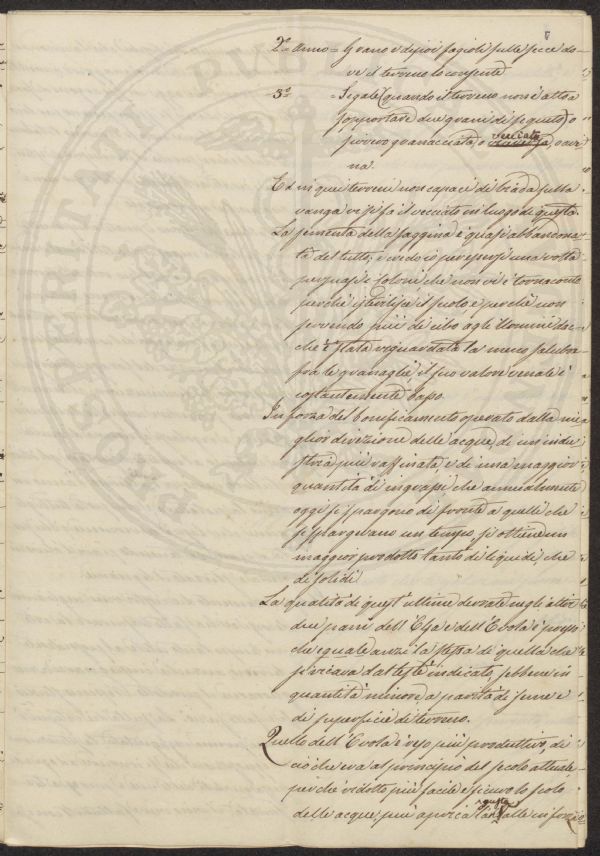 2.º Anno = Grano e dipiù fagioli sulle fecce do-
ve il terreno lo consente
3.º = Segale (quando il terreno non è atto a
sopportare due grani di seguito) o
puro granacciata, o vecciata, o ave-
na.
Ed in quei terreni non capaci di biada sulla
vanga vi si fa il vecciato in luogo di questa.
La sementa della saggina è quasi abbandona-
ta del tutto; e credo io per essersi una volta
persuasi i coloni che non vi è tornaconto
perchè isterilisce il suolo e perchè non
servendo più di cibo agli Uomini dac-
chè è stata riguardata la meno salubre
fra le granaglie, il suo valore venale è
costantemente basso.
In forza del bonificamento operato dalla mi-
glior direzione delle acque, di un'indu-
stria più raffinata, e di una maggior
quantità di ingrassi che annualmente
oggi si spargono di fronte a quelli che
si spargevano un tempo, si ottiene un
maggior prodotto tanto di liquidi che
di solidi.
La qualità di quest'ultimi derrate negli altri
due piani dell'Elsa e dell'Evola è presso
che eguale anzi la stessa di quella che
si ricava dal testè indicato, sebbene in
quantità minore, a parità di seme e
di superficie di terreno.
Quello dell'Evola è reso più produttivo, di
ciò che era al principio del secolo attuale,
perchè ridotto più facile e sicuro lo scolo
delle acque; più aprica l'angusta valle in forza
PROSPERITATI PUBL